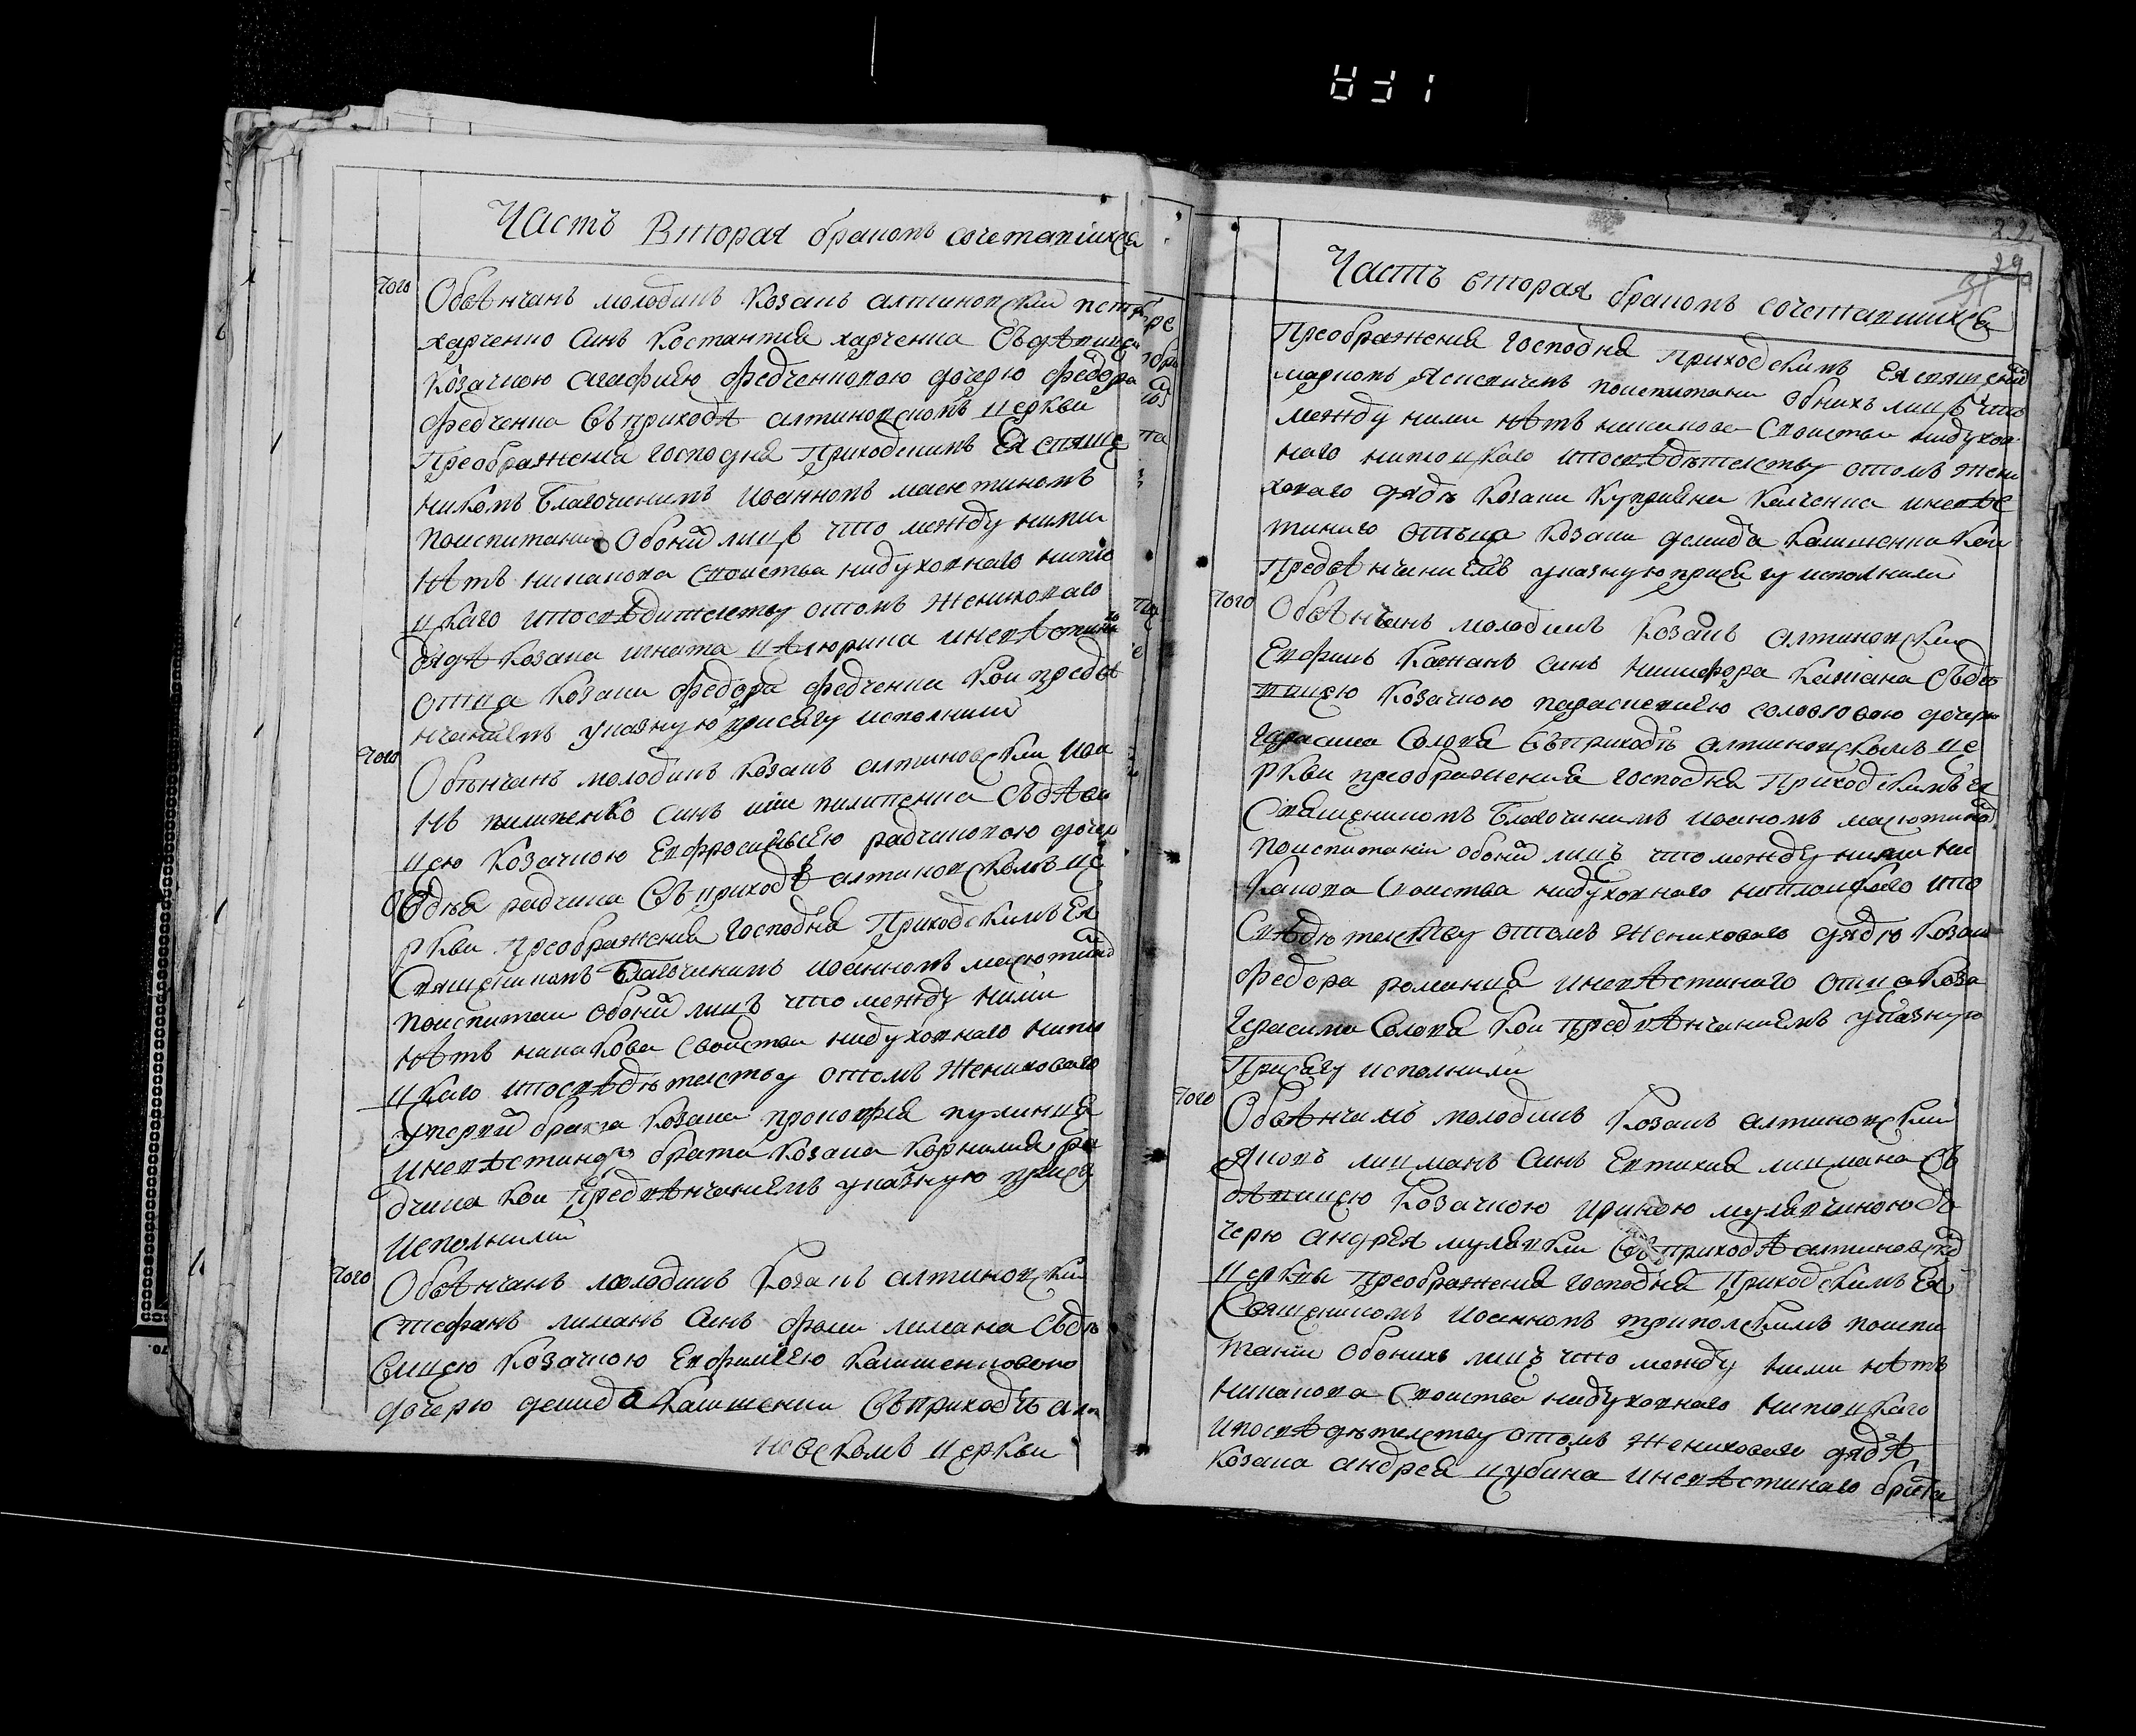 Часть Вторая браковъ сочетавшихся
того
Обвѣнчанъ молодикъ козакъ алтиновски петръ
харченко синъ костантия харченка Съдѣвицею
козачкою агафиею федченковою дочерю федора
федченка Въприходѣ алтиновскомъ церкви
Преображения господня Приходскимъ Ея свяще
никомъ благочинимъ иоанномъ масютиномъ
Поиспитании обоий лицъ что между ними
нѣтъ никакова своиства нидуховнаго нипло
цкаго ипосвѣдителству отомъ жениховаго
дядѣ козака игната цѣлюрика иневѣстинаго
отца козака федора федченка кои предвѣ
нчаниемъ указную присягу исполнили
того
Обвѣнчанъ молодикъ козакъ алтиновски иоа
нъ пилипенко синъ пилипенка Съдѣви
цею козачкою Евфросиниею радчиковою дочер
радчика Въприходѣ алтиновскомъ це
ркви преображения господня Приходскимъ Ея
Священикомъ Благочинимъ иоанномъ масютином
поиспитании обоий лицъ что между ними
нѣтъ никакова своиства нидуховнаго нипло
цкаго ипосвѣдѣтелству отомъ жениховаго
брата козака прокофия
иневѣстинаго брата козака корнилия ра
дчика кои предвѣнчаниемъ указную прися
исполнили
того
Обвѣнчанъ молодикъ козакъ алтиновски
Стефанъ лиманъ синъ фоми лимана Съдѣ
вицею козачкою Евфимиею калишенковою
дочерю демида калишенка Въприходѣ алти
новскомъ церкви
831
29
Часть вторая браковъ сочетавшихся
Преображения господня приходскимъ Ея священ
маркомъ поиспитании обоихъ лицъ что
между ними нѣтъ никакова своиства нидухов
наго ниплоцкаго ипосвѣдѣтелству отомъ жени
ховаго дядѣ козака куприяна иневѣс
тинаго отъца козака демида калишенка кои
предвѣнчаниемъ указную присягу исполнили
того
Обвѣнчанъ молодикъ козакъ алтиновски
Евфимъ кажанъ синъ никифора кажана Съдѣ
вицею козачкою параскевиею соловговою дочерю
герасима Въприходѣ алтиновскомъ це
ркви преображения господня приходскимъ Ея
Священикомъ Благочинимъ иоаномъ масютином
поиспитании обоий лицъ что между ними ни
какова своиства нидуховнаго ниплоцкаго ипо
Свѣдѣтелству отомъ жениховаго дядю козак
федора романця иневѣстинаго отца коза
герасима кои предвѣнчаниемъ указную
Присягу исполнили
того
Обвѣнчанъ молодикъ козакъ алтиновски
яковъ лицманъ синъ Евтихия лицмана Съ
дѣвицею козачкою ириною мулявчиною до
черю андрея мулявки Въприходѣ алтиновской
церкви Преображения господня Приходскимъ Ея
Священикомъ иоанномъ триполскимъ поиспи
тании обоихъ лицъ что между ними нѣтъ
никакова своиства нидуховнаго ниплоцкаго
ипосвѣдѣтелству отомъ жениховаго дядѣ
козака андрея цубина иневѣстинаго брата